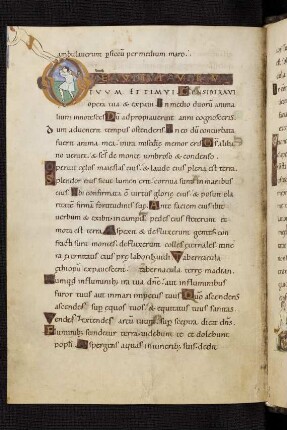 ambulauerunt p siccu per medium maris.
TUUM ET TIMUI CONSIDERAUI
opera tua & expaui In medio duorū anima
lium innotesceris Dū adpropiauerint anni cognosceris
dum aduenerit tempus ostenderis In eo dū conturbata
fuerit anima mea in ira misedię memor eris
no ueniet & scs de monte umbroso & condenso
Operuit cęlos maiestas eius & laude eius plena est terra
Splendor eius sicut lumen erit cornua sunt in manibus
eius Ibi confirmata ē uirtus glorię eius & posuit cla
ritatē firmā fortitudinis suę Ante faciem eius ibit
uerbum & exibit in campis pedes eius steterunt &
mota est terra Aspexit & defluxerunt gentes con
fracti sunt montes defluxerunt colles ęternales itine
ra ęternitatis eius pre labore uidi Tabernacula
ęthiopū expauescent tabernacula terrę madian
Numquid influminib; ira tua dne aut influminibus
furor tuus aut inmari impetus tuus Quo ascendens
ascendes sup equos tuos & equitatus tuus sanitas
Tendes extendes arcū tuum sup sceptra dicit dns
Fluminib; scindetur terra uidebunt te et dolebunt
popli Aspergens aquas initinerib; suis dedit